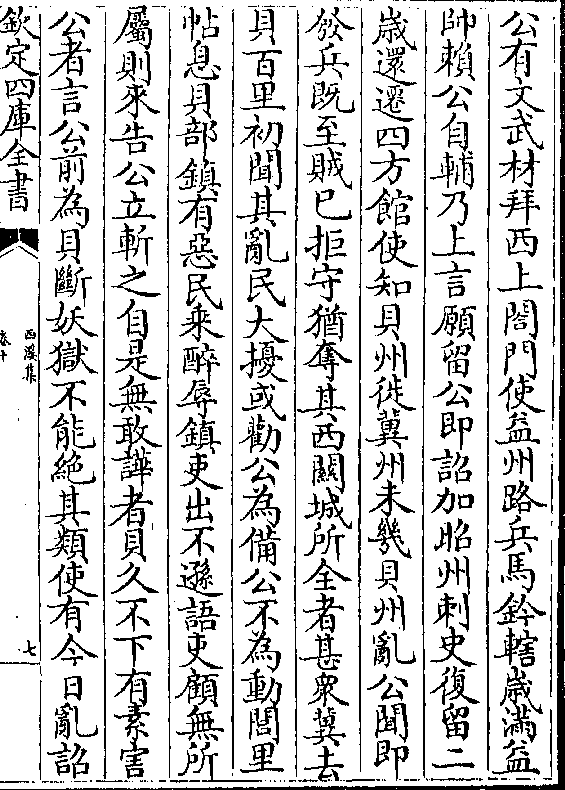 公有文武材拜西上閤門使益州路兵馬鈐轄歲滿益
帥賴公自輔乃上言願留公即詔加昭州刺史復留二
歲還遷四方館使知貝州徙冀州未幾貝州亂公聞即
發兵既至賊已拒守猶奪其西關城所全者甚衆冀去
貝百里初聞其亂民大擾或勸公為備公不為動閭里
帖息貝部鎮有惡民乘醉辱鎮吏出不遜語吏顧無所
屬則來告公立斬之自是無敢譁者貝久不下有素害
公者言公前為貝斷妖獄不能絶其類使有今日亂詔
欽定四庫全書
西溪集
卷十
七